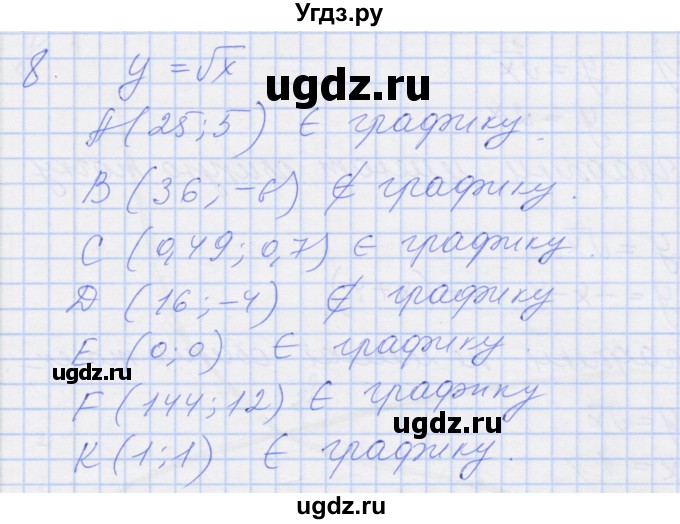 Угдз.ру
8. y = √x
ugdz.ru
A (25; 5) ∈ графику.
B (36; -6) ∉ графику.
C (0,49; 0,7) ∈ графику.
D (16; -4) ∉ графику
E (0; 0) ∈ графику.
ugdz.ru
F (144; 12) ∈ графику
ugdz.ru
K (1; 1) ∈ графику.
ugdz.ru